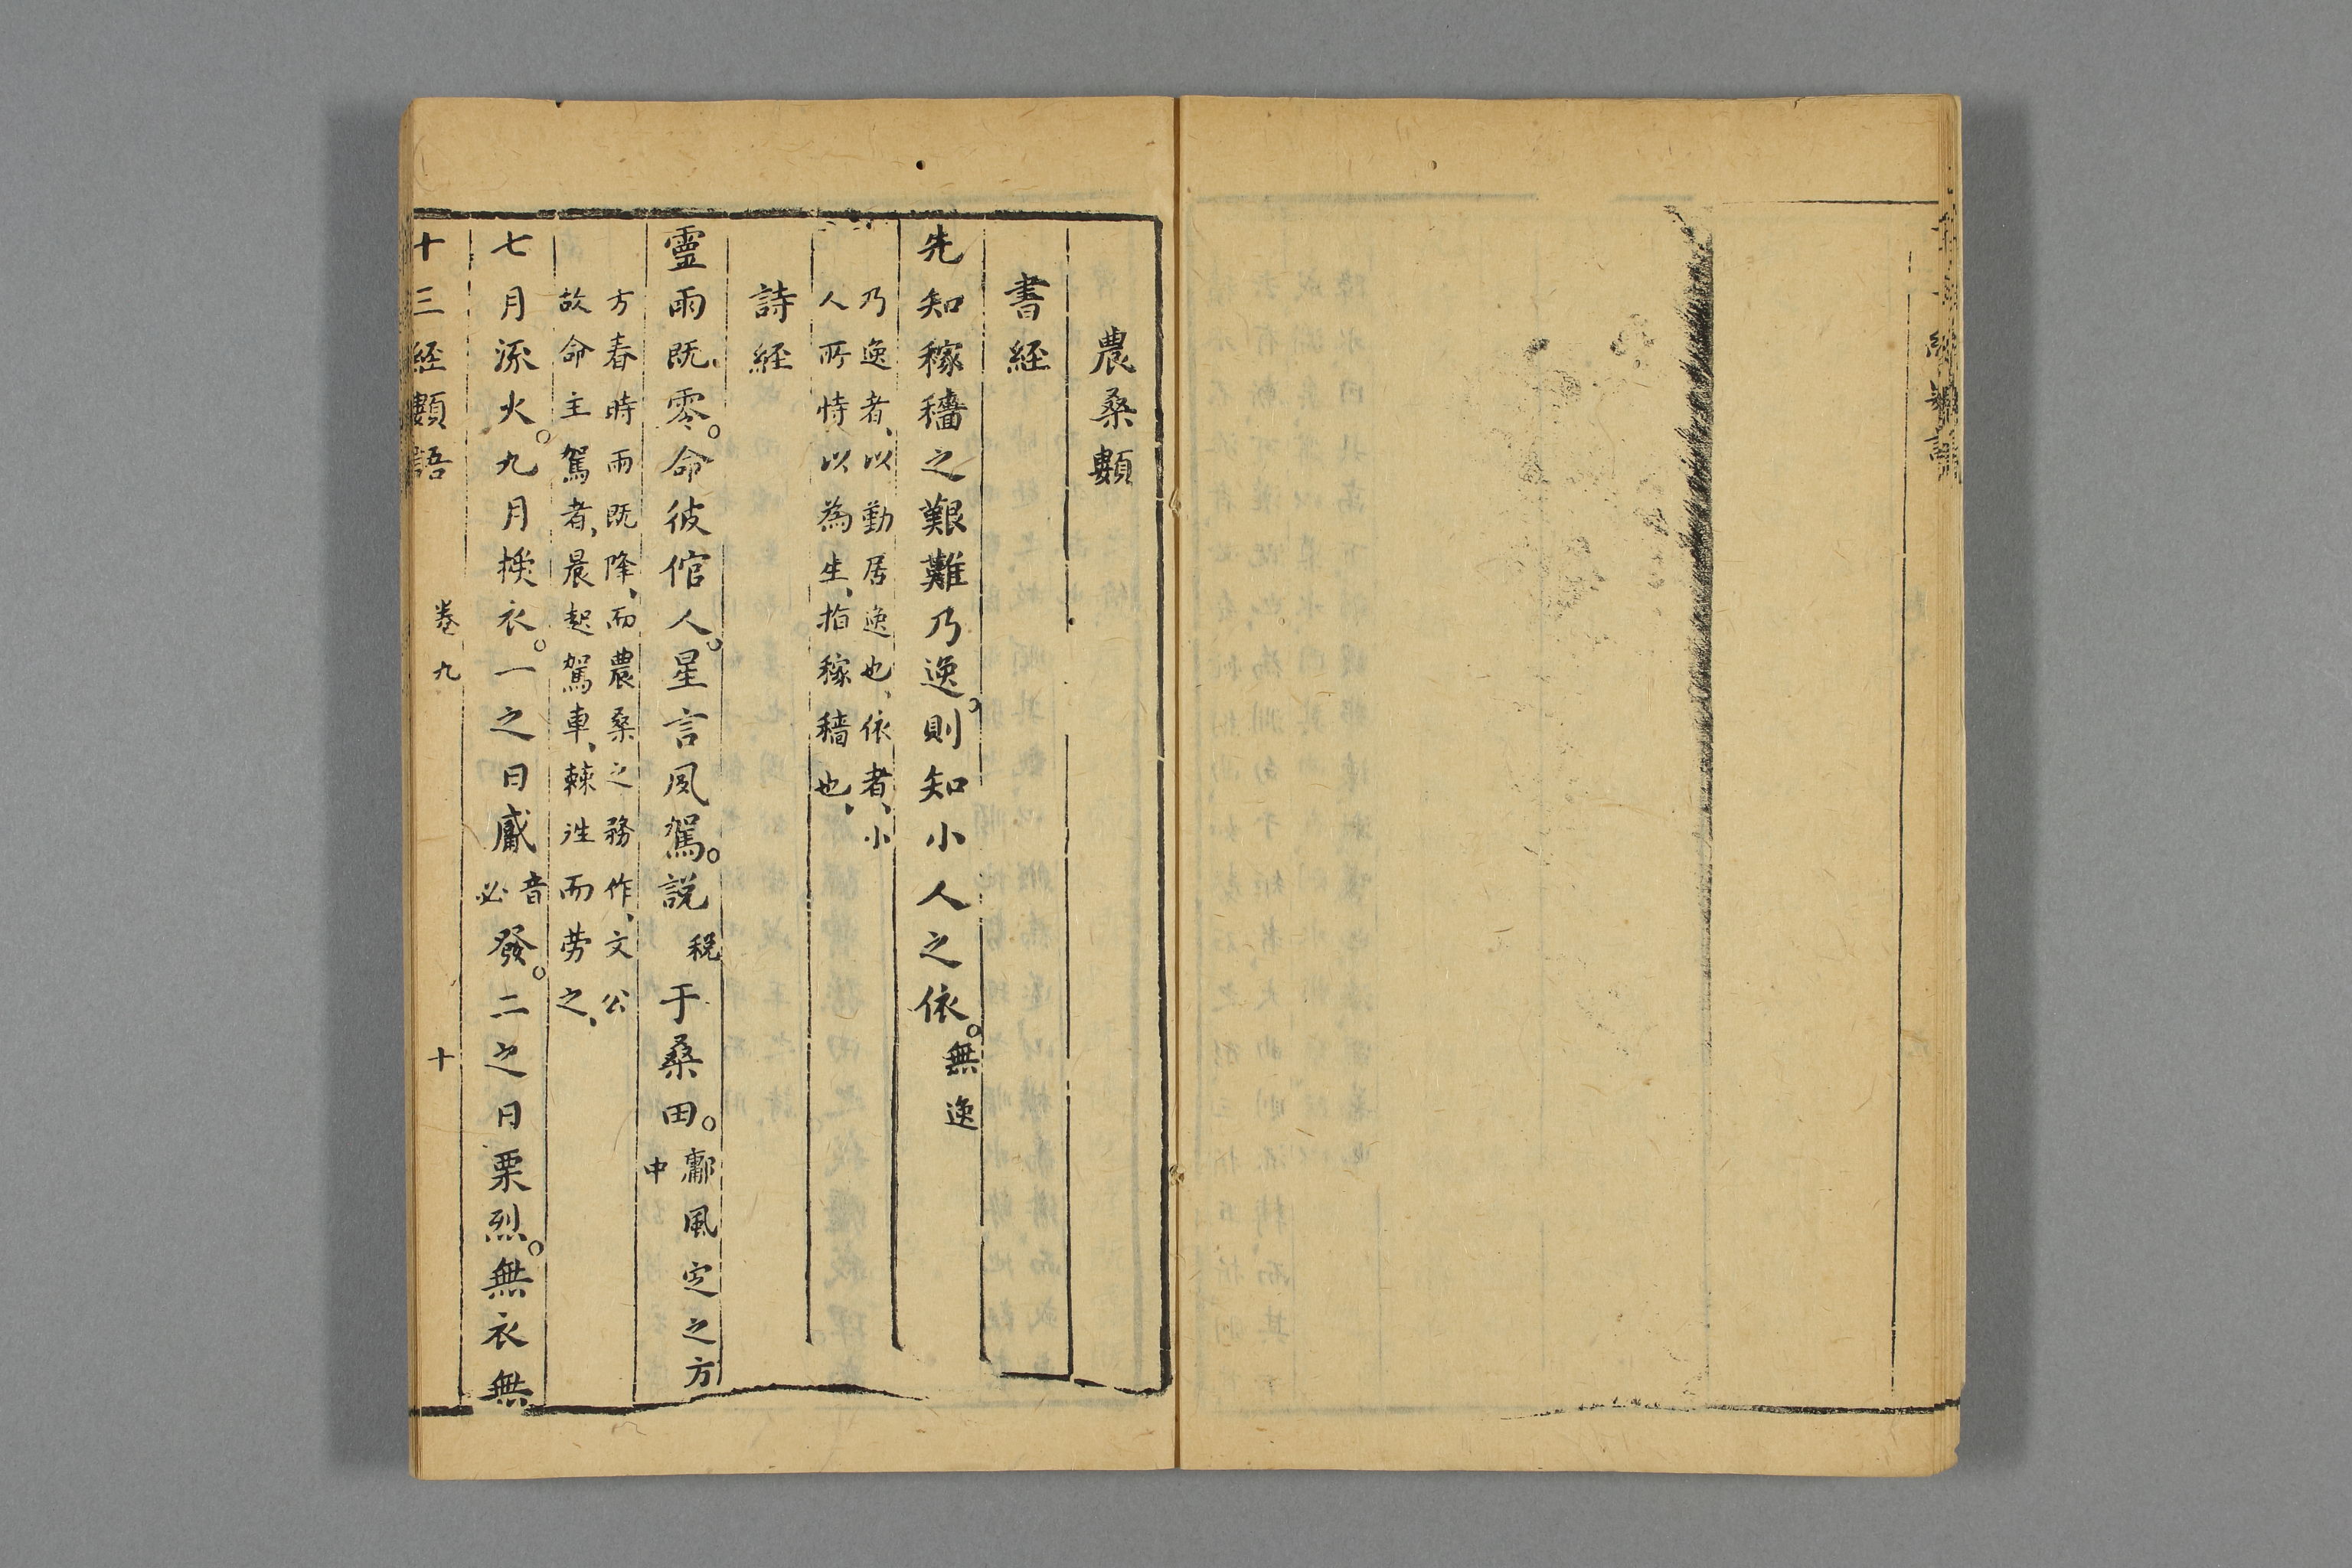 農桑類
書経
先知稼穡之艱難乃逸。則知小人之依。無逸
乃逸者、以勤居逸也、依者、小
人所恃以為生、指稼穡也、
詩経
靈雨既零。命彼倌人。星言夙駕。説税于桑田。鄘風定之方中
方春時雨既降、而農桑之務作、文公
故命主駕者、晨起駕車、亟往而劳之、
七月流火。九月授衣。一之日觱音必發。二之日栗烈。無衣無
十三経類語 卷九 十